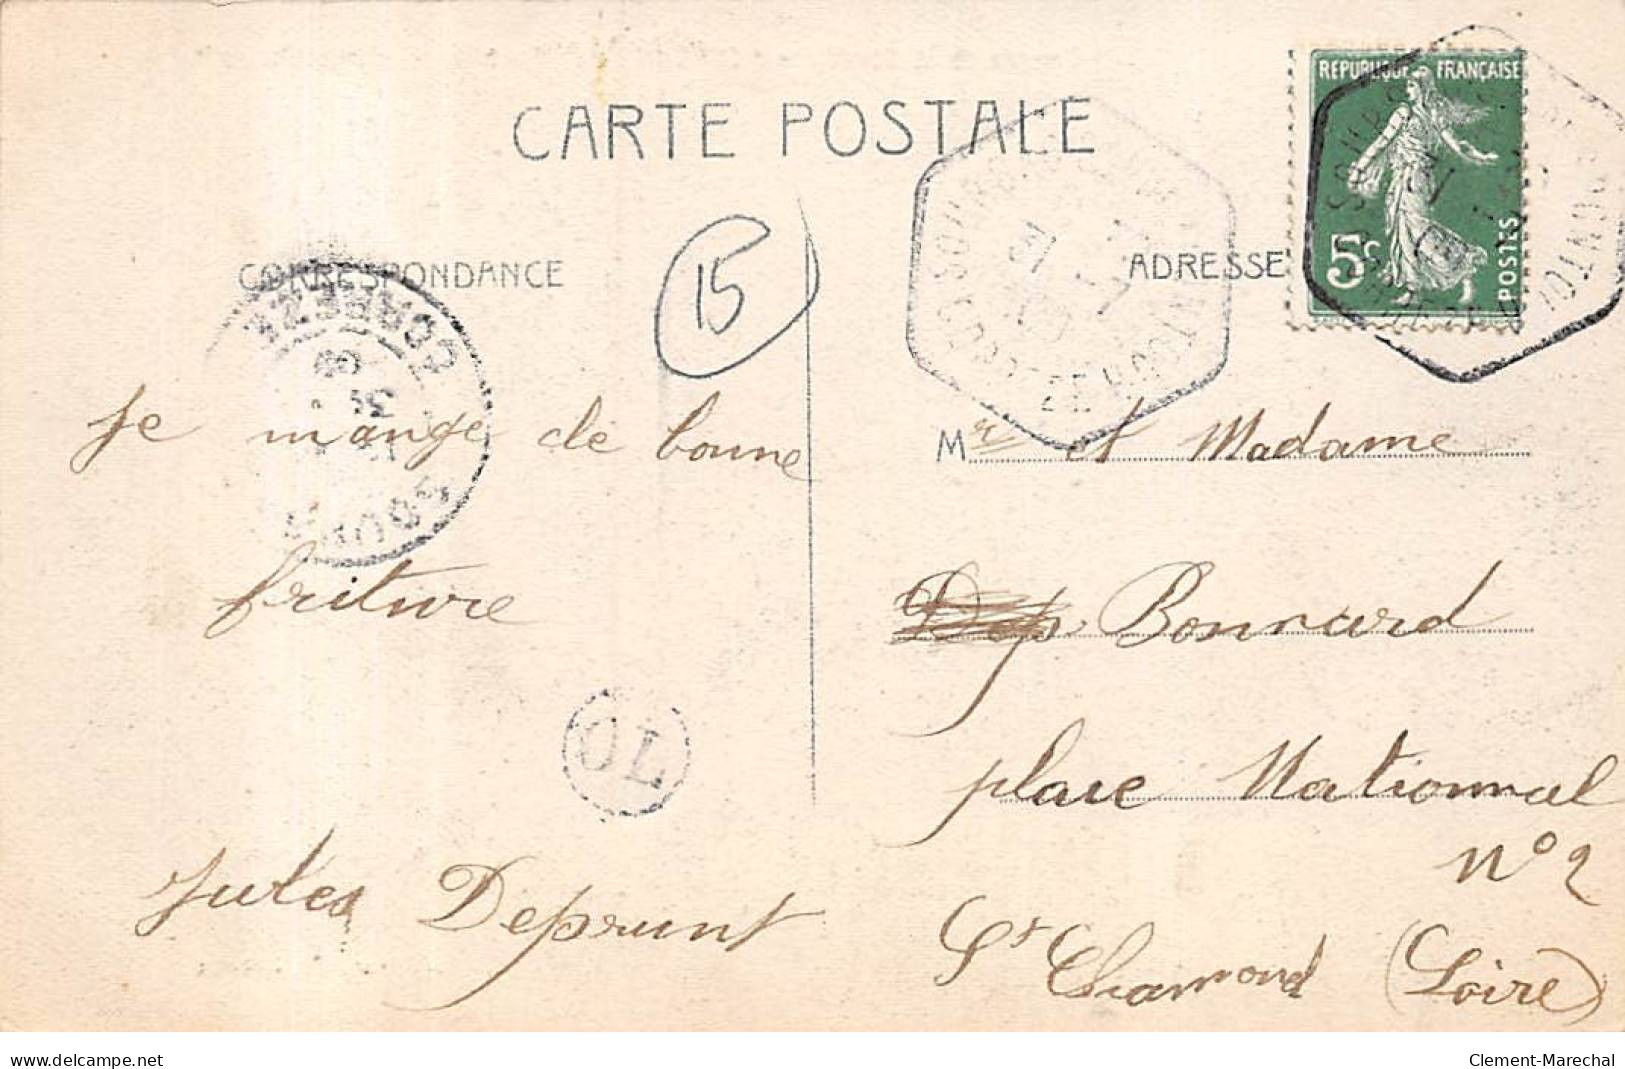 CARTE POSTALE
CORRESPONDANCE
15
ADRESSE
REPUBLIQUE FRANÇAISE
5c
POSTES
CORREZE
je mange de bonne
friture
OL
Jules Deprunt
Mr et Madame
Dep Bonnard
place Nationnal
n° 2
St Chamond (Loire)
www.delcampe.net
Clement-Marechal